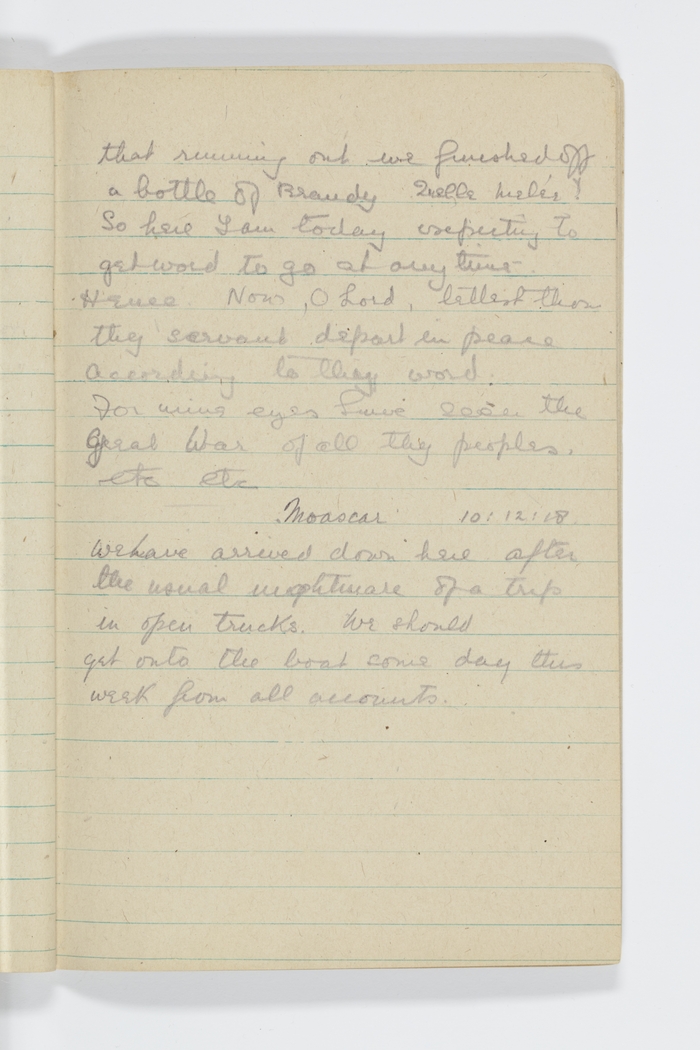 that running out we finished off
a bottle of Brandy Quelle melée!
So here I am today expecting to
get word to go at any time.
Hence Now, O Lord, lettest thou
thy servant depart in peace
according to thy word.
For mine eyes have seen the
great War of all thy peoples.
etc etc
Moascar 10:12:18
We have arrived down here after
the usual nightmare of a trip
in open trucks. We should
get onto the boat some day this
week from all accounts.